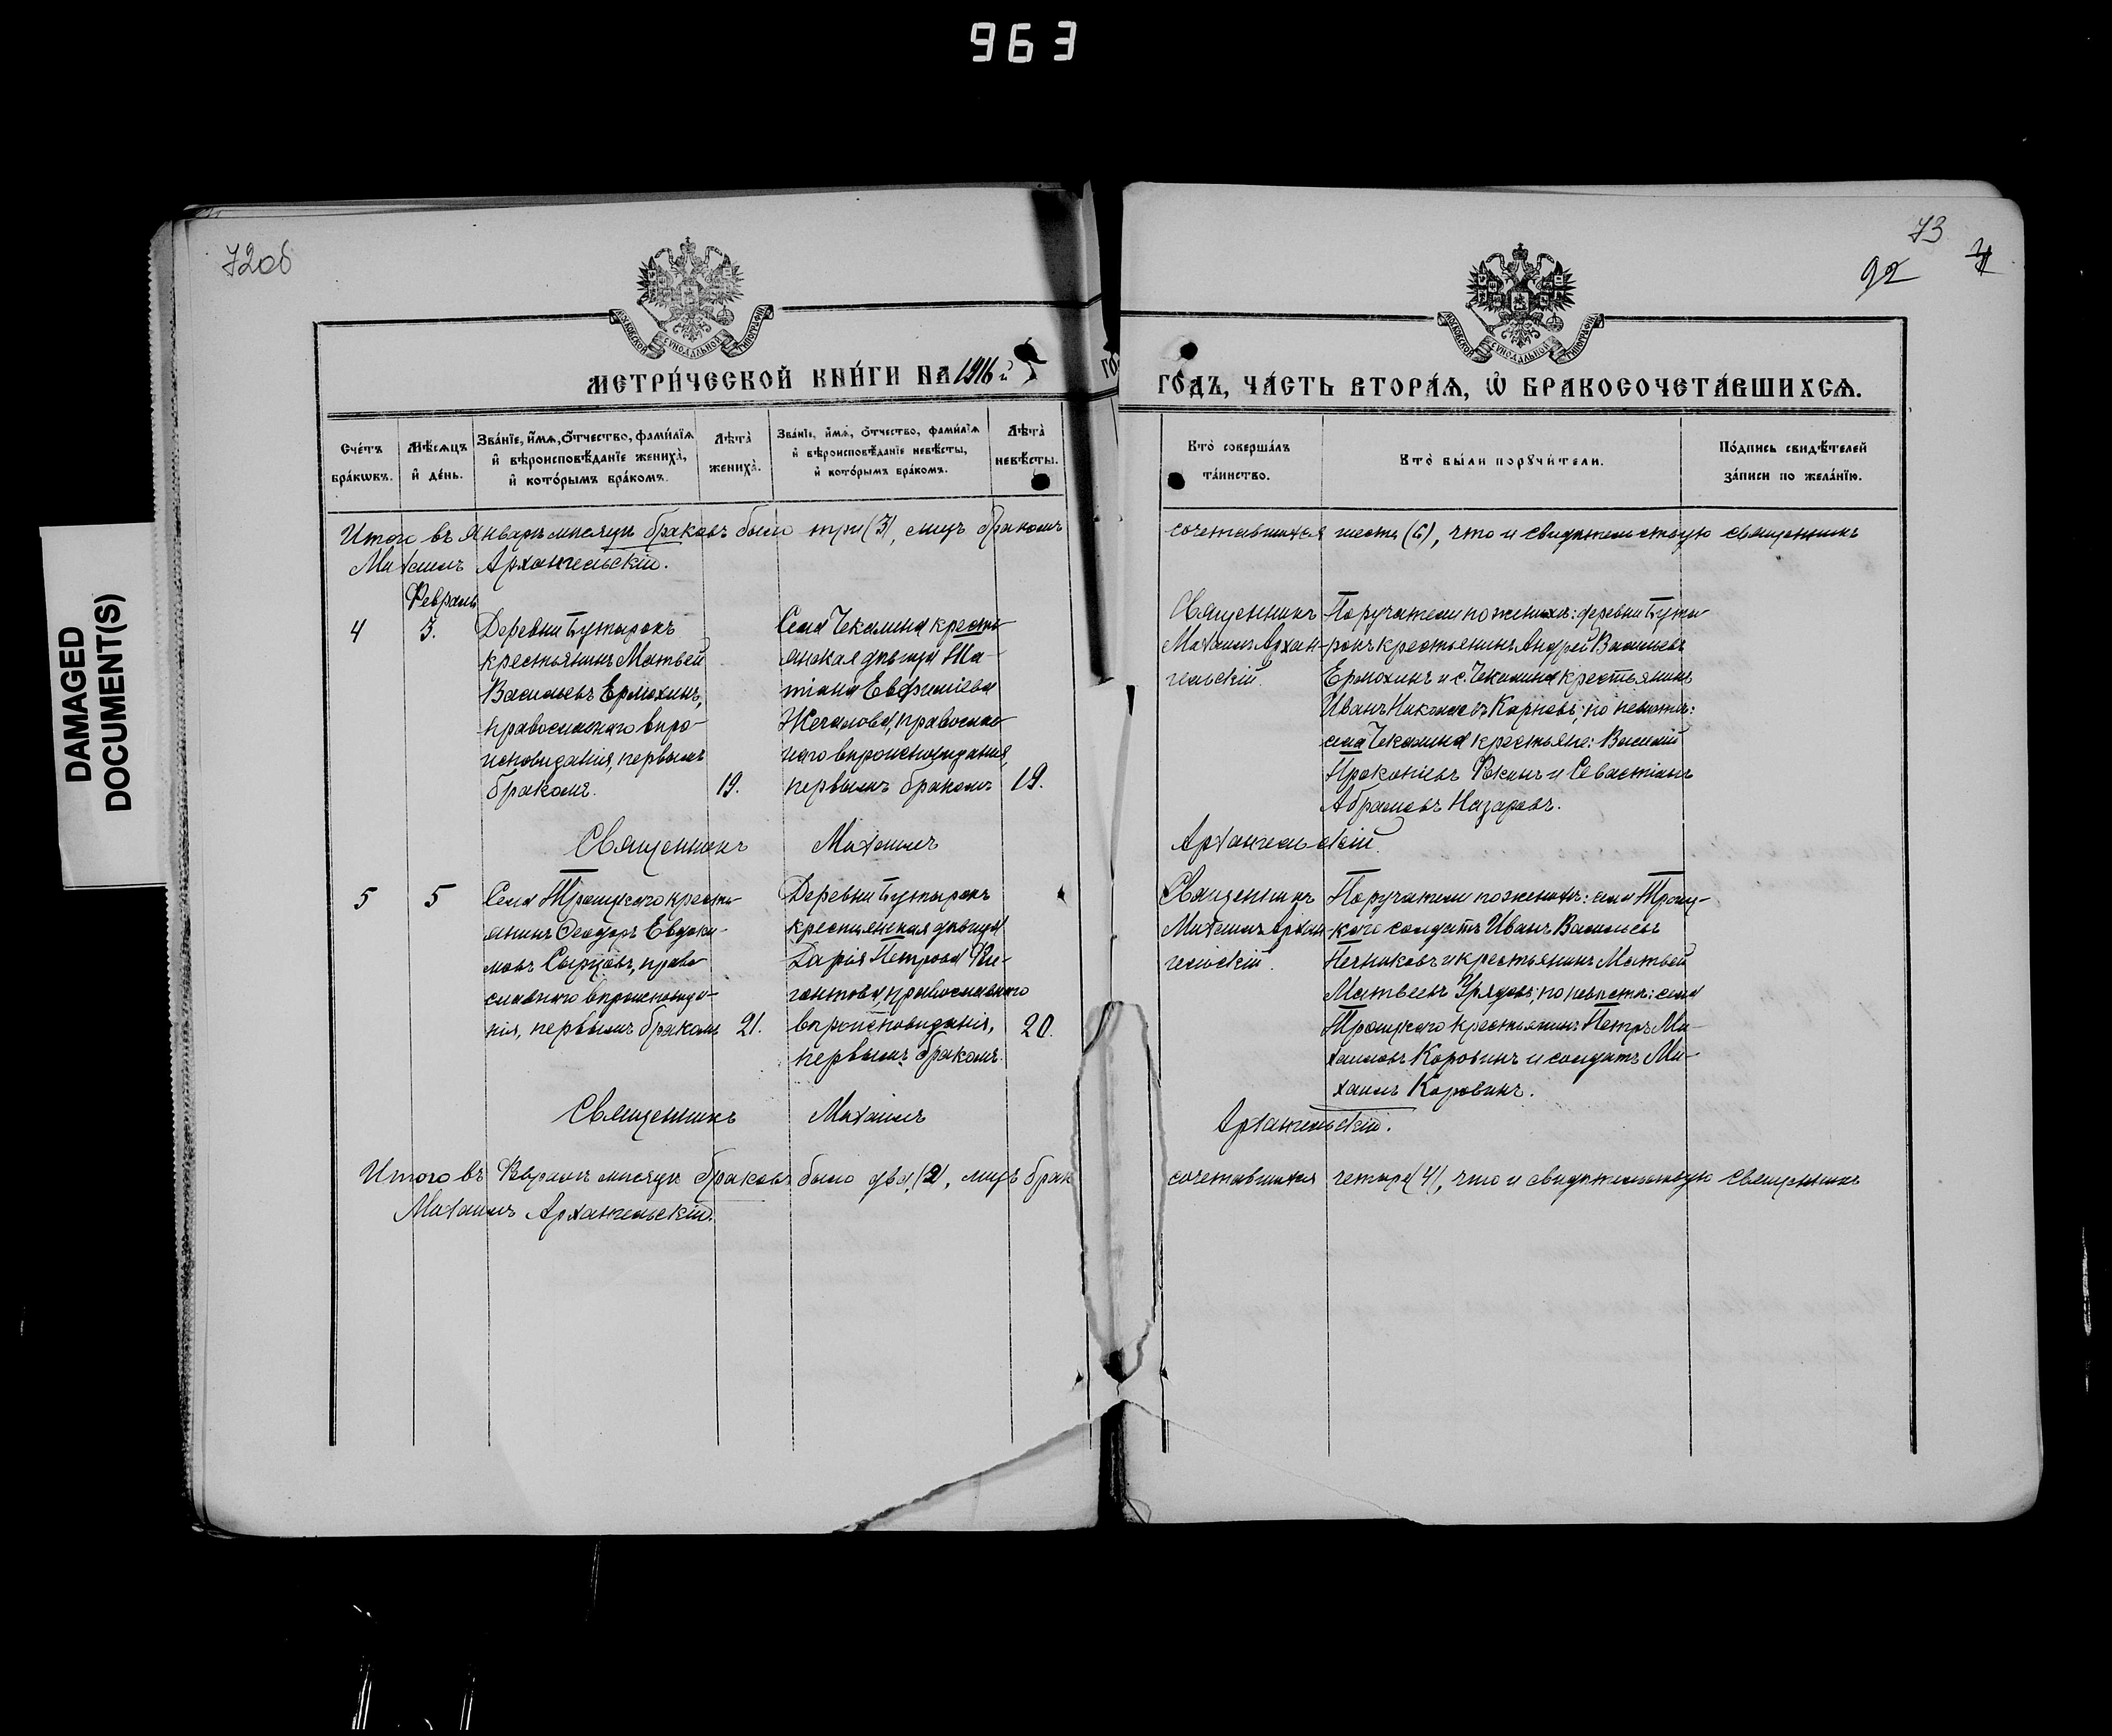 963
DAMAGED
DOCUMENT(S)
72об
73
92
МОСКОВСКОЙ СѴНОДАЛЬНОЙ ТИПОГРАФІИ
МОСКОВСКОЙ СѴНОДАЛЬНОЙ ТИПОГРАФІИ
МЕТРИ́ЧЕСКОЙ КНИ́ГИ НА 1916 й
ГО́ДЪ, ЧА́СТЬ ВТОРА́Ѧ, Ѡ҆ БРАКОСОЧЕТА́ВШИХСѦ.
Сче́тъ бра́кѡвъ.
Мѣ́сѧцъ и҆ де́нь.
Зва́нїе, и҆́мѧ, ѻ҆́тчество, фами́лїѧ и҆ вѣроисповѣ́данїе жениха̀, и҆ кото́рымъ бра́комъ.
Лѣта̀ жениха̀.
Зва́нїе, и҆́мѧ, ѻ҆́тчество, фами́лїѧ и҆ вѣроисповѣ́данїе невѣ́сты, и҆ кото́рымъ бра́комъ.
Лѣта̀ невѣ́сты.
Кто̀ соверша́лъ та́инство.
Кто̀ бы́ли порꙋчи́тели.
По́дпись свидѣ́телей за́писи по жела́нїю.
Итого въ Январѣ мѣсяцѣ браковъ было три (3), лицъ бракомъ сочетавшихся шесть (6), что и свидѣтельствую священникъ
Михаилъ Архангельскій.
Февраль
4
3.
Деревни Бутырокъ
крестьянинъ Матвей
Васильевъ Ермохинъ,
православнаго вѣро-
исповѣданія, первымъ
бракомъ.
19.
Села Чекалина кресть-
янская дѣвица Та-
тіана Евфиміева
Жегалова, православ-
наго вѣроисповѣданія,
первымъ бракомъ
19.
Священникъ
Михаилъ Архан-
гельскій.
Поручители по женихѣ: деревни Буты-
рокъ крестьянинъ Андрей Васильевъ
Ермохинъ и с. Чекалина крестьянинъ
Иванъ Николаевъ Карповъ; по невѣстѣ:
села Чекалина крестьяне: Василій
Прокопіевъ Фокинъ и Севастіанъ
Абрамовъ Назаровъ.
Священникъ Михаилъ Архангельскій.
5
5
Села Троицкаго кресть-
янинъ Ѳеодоръ Евдоки-
мовъ Сырцовъ, право-
славнаго вѣроисповѣда-
нія, первымъ бракомъ
21.
Деревни Бутырокъ
крестьянская дѣвица
Дарія Петрова
православнаго
вѣроисповѣданія,
первымъ бракомъ.
20.
Священникъ
Михаилъ Архан
гельскій.
Поручители по женихѣ: села Троиц-
каго солдатъ Иванъ Васильевъ
Печниковъ и крестьянинъ Матвей
Матвеевъ Урядовъ; по невѣстѣ: села
Троицкаго крестьянинъ Петръ Ми-
хаиловъ Коровинъ и солдатъ Ми-
хаилъ Коровинъ.
Священникъ Михаилъ Архангельскій.
Итого въ Февралѣ мѣсяцѣ браковъ было два (2), лицъ брак сочетавшихся четыре (4), что и свидѣтельствую священникъ
Михаилъ Архангельскій.